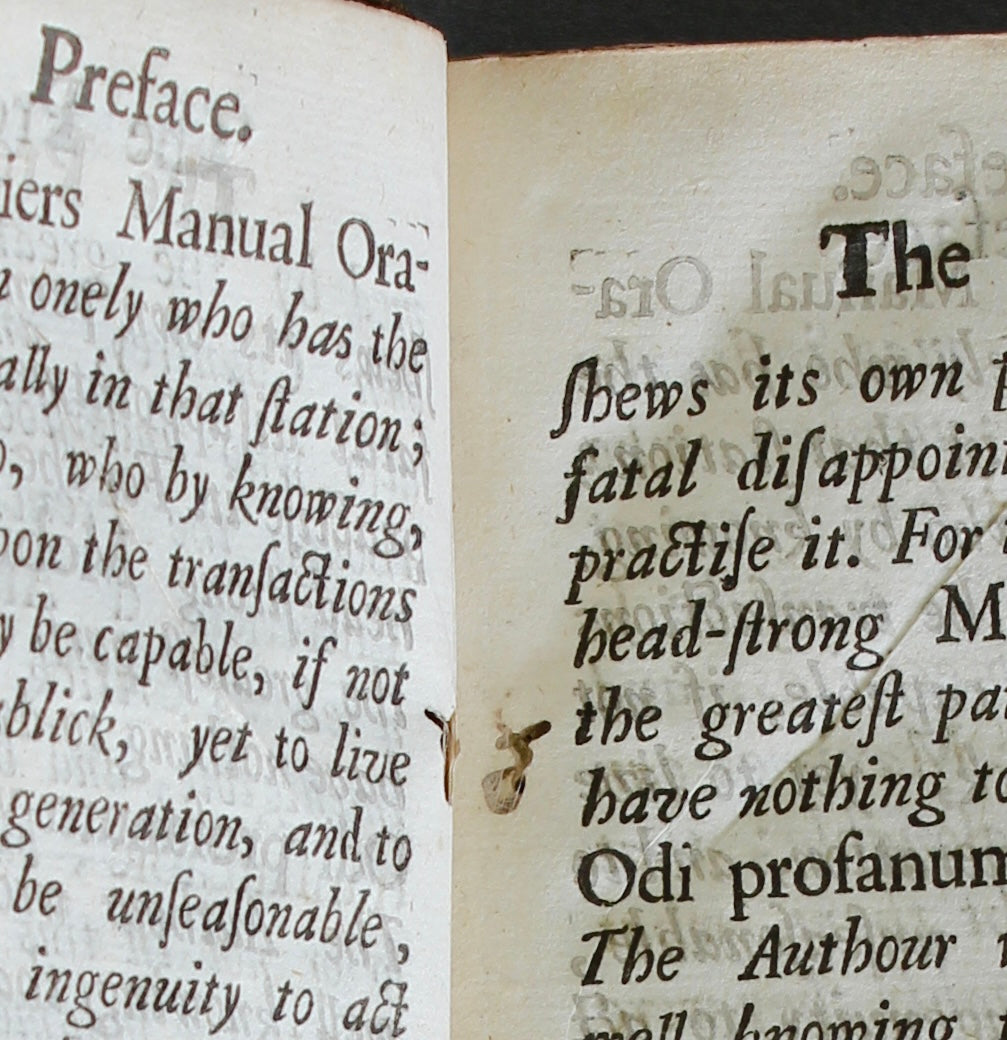 Preface.
iers Manual Ora-
onely who has the
ally in that ſtation;
who by knowing,
pon the tranſactions
y be capable, if not
blick, yet to live
generation, and to
be unſeaſonable,
ingenuity to act
The
ſhews its own
fatal diſappoin
practiſe it. For
head-ſtrong M
the greateſt pa
have nothing to
Odi profanum
The Authour
well knowing